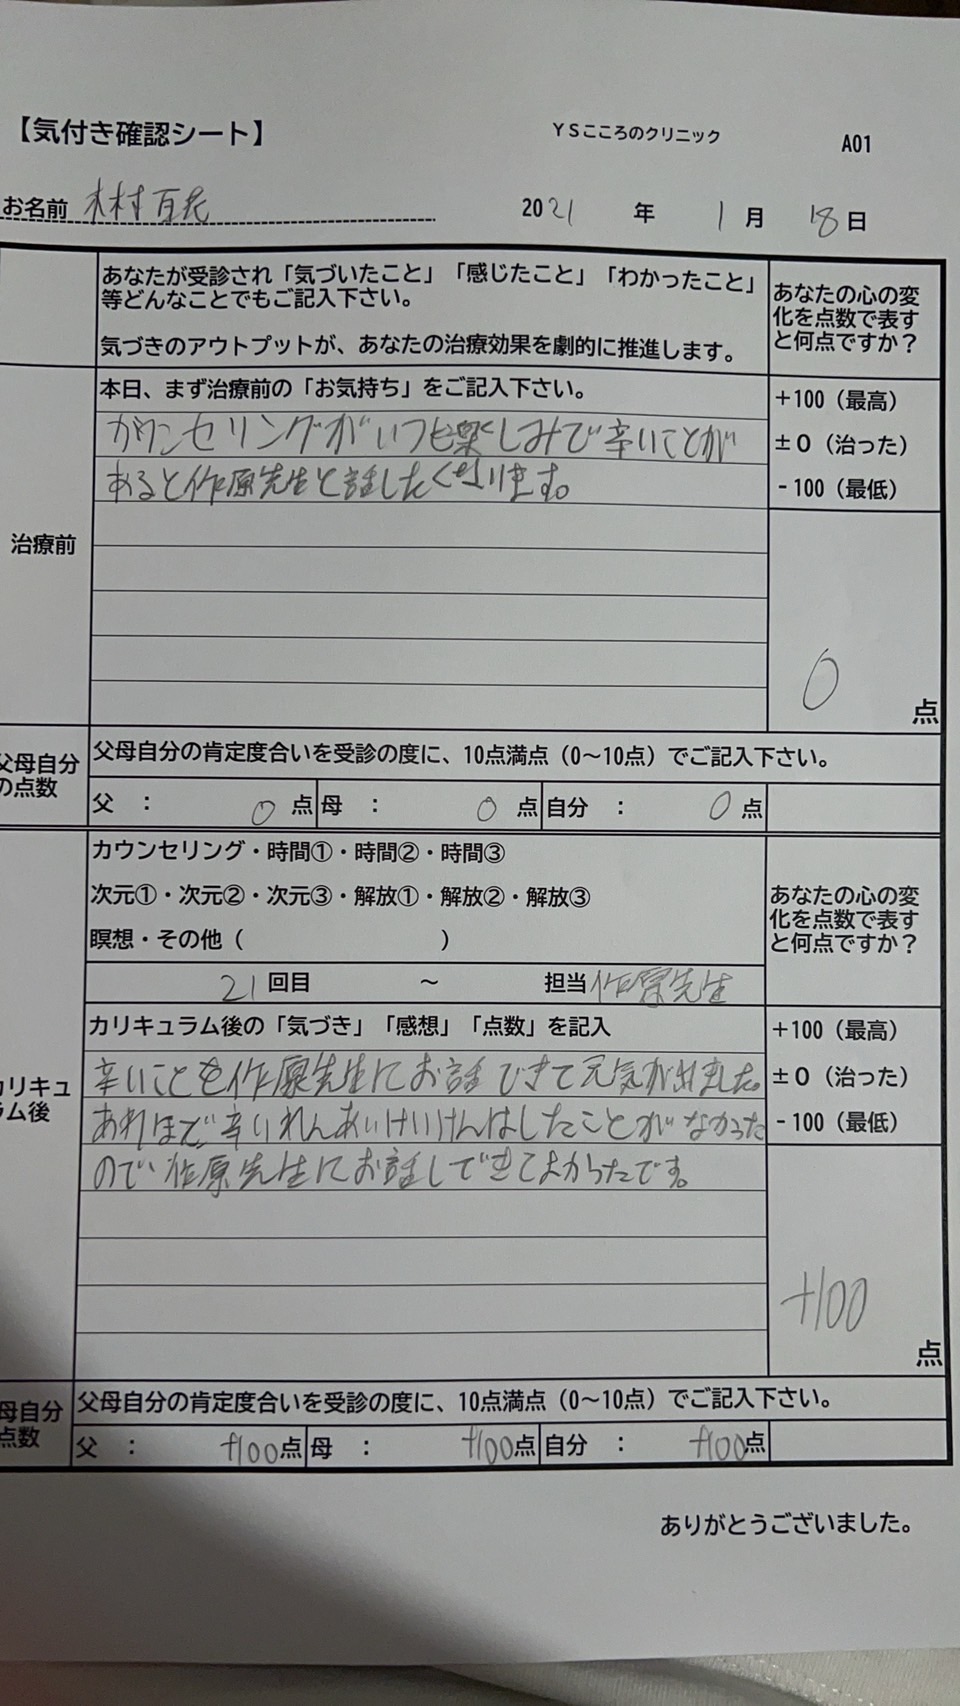 【気付き確認シート】
YSこころのクリニック
A01
お名前 木村百花
2021年 1月 18日
あなたが受診され「気づいたこと」「感じたこと」「わかったこと」
等どんなことでもご記入下さい。
気づきのアウトプットが、あなたの治療効果を劇的に推進します。
あなたの心の変
化を点数で表す
と何点ですか？
治療前
本日、まず治療前の「お気持ち」をご記入下さい。
カウンセリングがいつも楽しみで辛いことが
あると作原先生と話したくなります。
+100（最高）
±0（治った）
-100（最低）
0点
父母自分
の点数
父母自分の肯定度合いを受診の度に、10点満点（0～10点）でご記入下さい。
父 ： 0点 母 ： 0点 自分 ： 0点
カリキュ
ラム後
カウンセリング・時間①・時間②・時間③
次元①・次元②・次元③・解放①・解放②・解放③
瞑想・その他（ ）
21回目 ～ 担当 作原先生
あなたの心の変
化を点数で表す
と何点ですか？
カリキュラム後の「気づき」「感想」「点数」を記入
辛いことを作原先生にお話できて元気が出ました。
あれほど辛いれんあいけいけんはしたことがなかった
ので作原先生にお話しできてよかったです。
+100（最高）
±0（治った）
-100（最低）
+100点
母自分
点数
父母自分の肯定度合いを受診の度に、10点満点（0～10点）でご記入下さい。
父 ： +100点 母 ： +100点 自分 ： +100点
ありがとうございました。